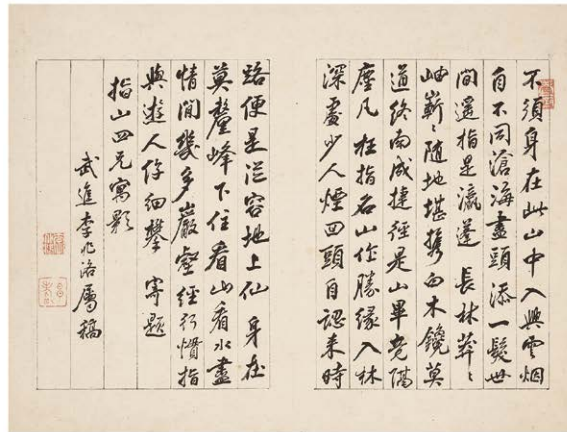 不須身在此山中入興雲烟
自不同滄海盡頭添一髮世
間還指是瀛蓬長林莽〻
岫嶄〻隨地堪携白木鑱莫
道終南成捷徑是山畢竟隔
塵凡柱指名山作勝緣入林
深處少人煙回頭自認来時
路便是從容地上仙身在
莫釐峰下住看山看水盡
情閒幾多巖壑經行慣指
與遊人仔細攀 寄題
指山四兄寫影
武進李兆洛屬稿